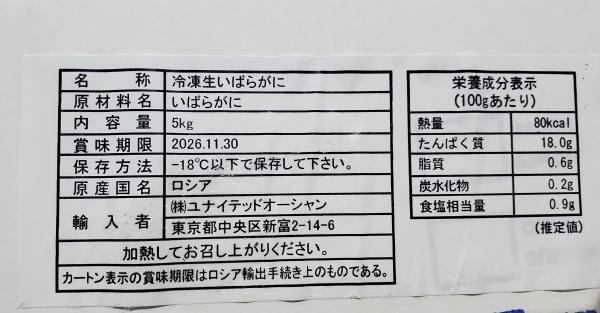 名称 冷凍生いばらがに
原材料名 いばらがに
内容量 5kg
賞味期限 2026.11.30
保存方法 -18℃以下で保存して下さい。
原産国名 ロシア
輸入者 ㈱ユナイテッドオーシャン
東京都中央区新富2-14-6
加熱してお召し上がりください。
カートン表示の賞味期限はロシア輸出手続き上のものである。
栄養成分表示
(100gあたり)
熱量 80kcal
たんぱく質 18.0g
脂質 0.6g
炭水化物 0.2g
食塩相当量 0.9g
(推定値)